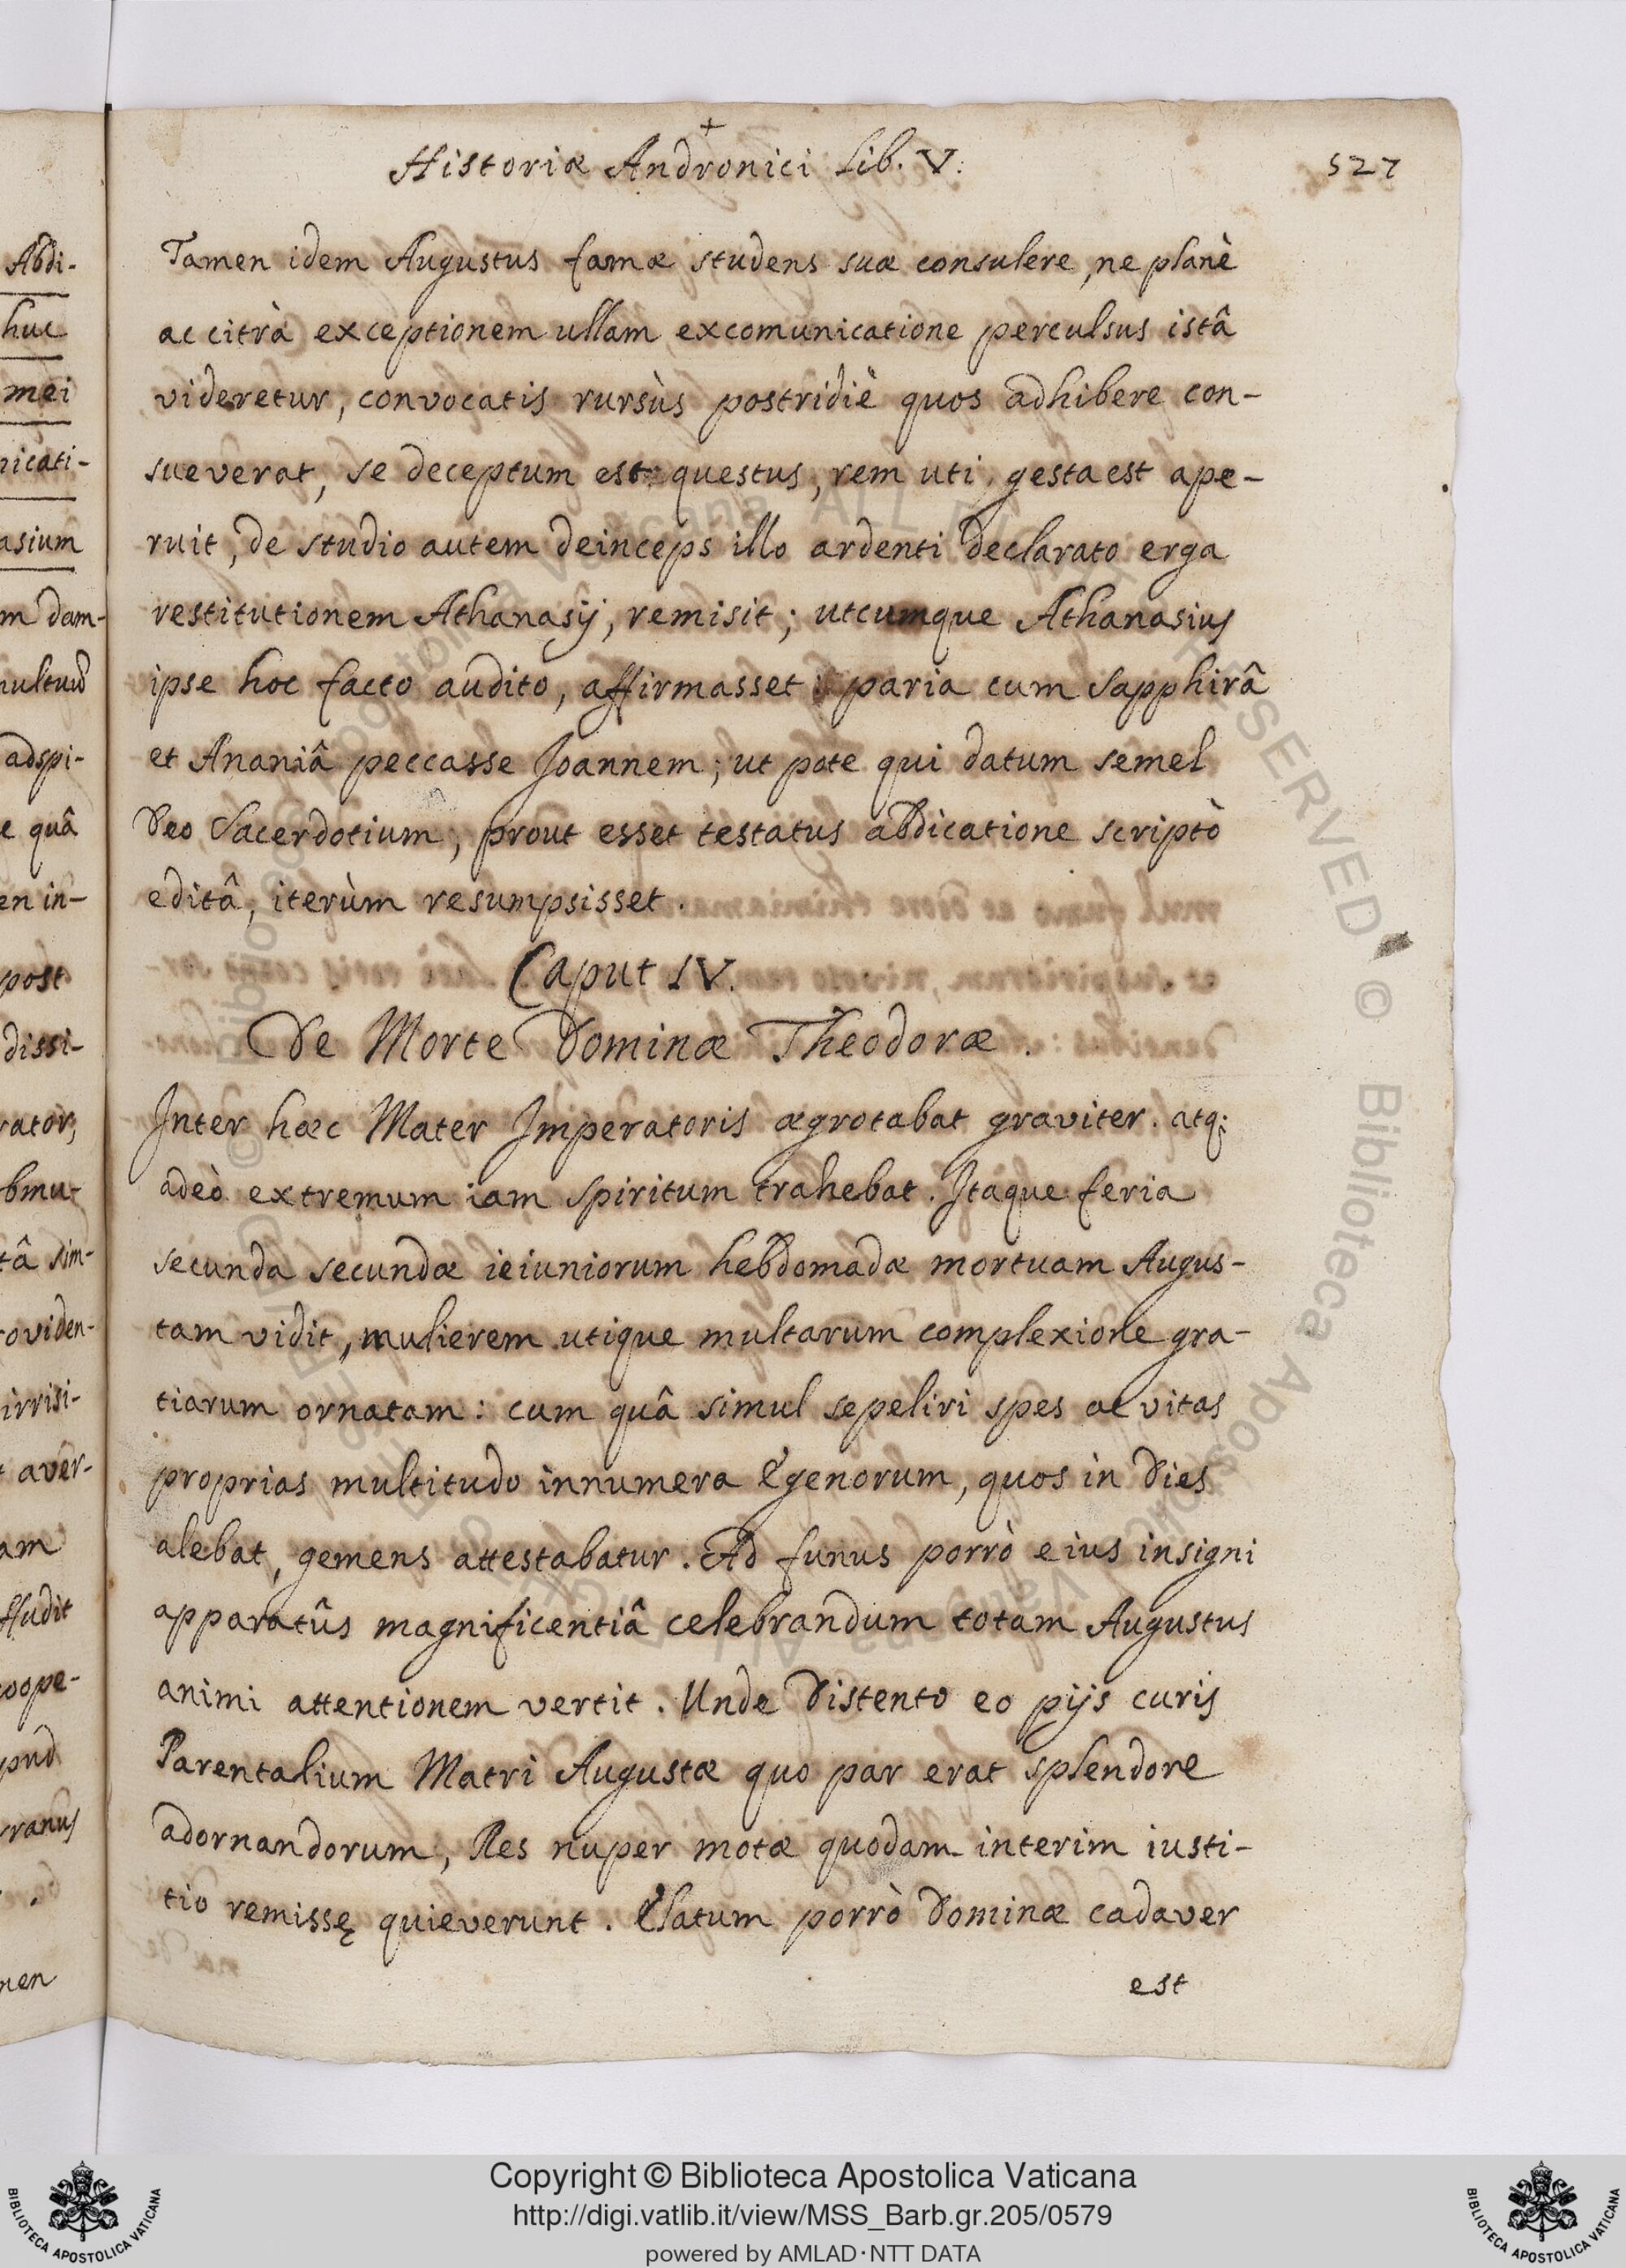 +
Historiæ Andronici Lib. V.
527
Tamen idem Augustus famæ studens suæ consulere, ne planè
ac citrà exceptionem ullam excomunicatione perculsus istâ
videretur, convocatis rursùs postridiè quos adhibere con-
sueverat, se deceptum est questus, rem uti gesta est ape-
ruit, de studio autem deinceps illo ardenti declarato erga
restitutionem Athanasij, remisit; utcumque Athanasius
ipse hoc facto audito, affirmasset paria cum Sapphirâ
et Ananiâ peccasse Joannem; ut pote qui datum semel
Deo Sacerdotium, prout esset testatus abdicatione scriptò
editâ, iterùm resumpsisset.
Caput IV.
De Morte Dominæ Theodoræ.
Inter hæc Mater Imperatoris ægrotabat graviter. atq;
adeò extremum iam spiritum trahebat. Itaque feria
secunda secundæ ieiuniorum hebdomadæ mortuam Augus-
tam vidit, mulierem utique multarum complexione gra-
tiarum ornatam: cum quâ simul sepeliri spes ac vitas
proprias multitudo innumera Egenorum, quos in dies
alebat, gemens attestabatur. Ad funus porrò eius insigni
apparatûs magnificentiâ celebrandum totam Augustus
animi attentionem vertit. Unde distento eo pijs curis
Parentalium Matri Augustæ quo par erat splendore
adornandorum, Res nuper motæ quodam interim iusti-
tio remissę quieverunt. Elatum porrò Dominæ cadaver
est
Abdi-
huc
mei
nicati-
asium
m dam-
adspi-
e quâ
en in-
post
dissi-
rator,
bmu-
tâ sim-
oviden-
irrisi-
aver-
am
ffudit
coope-
ranus
men
© Biblioteca Apostolica Vaticana ALL RIGHTS RESERVED © Biblioteca Apostolica Vaticana ALL RIGHTS RESERVED
Copyright © Biblioteca Apostolica Vaticana
http://digi.vatlib.it/view/MSS_Barb.gr.205/0579
powered by AMLAD·NTT DATA
BIBLIOTECA APOSTOLICA VATICANA
BIBLIOTECA APOSTOLICA VATICANA